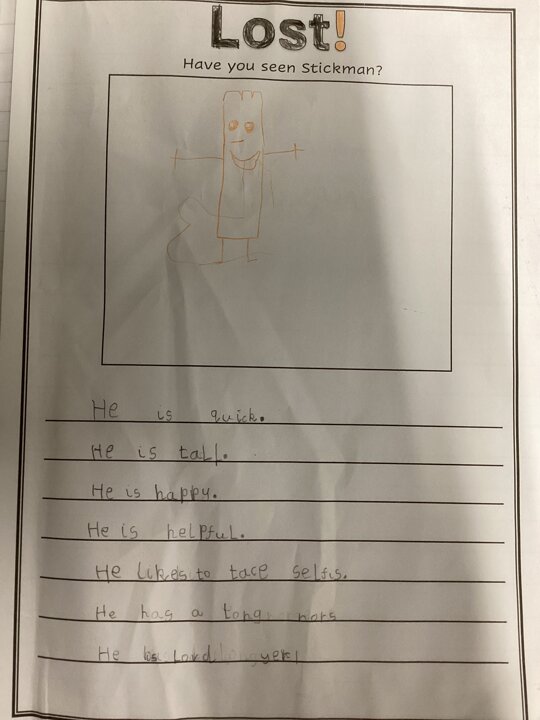 Lost!
Have you seen Stickman?
He is quick.
He is tall.
He is happy.
He is helpful.
He likes to tace selfis.
He has a long
He is